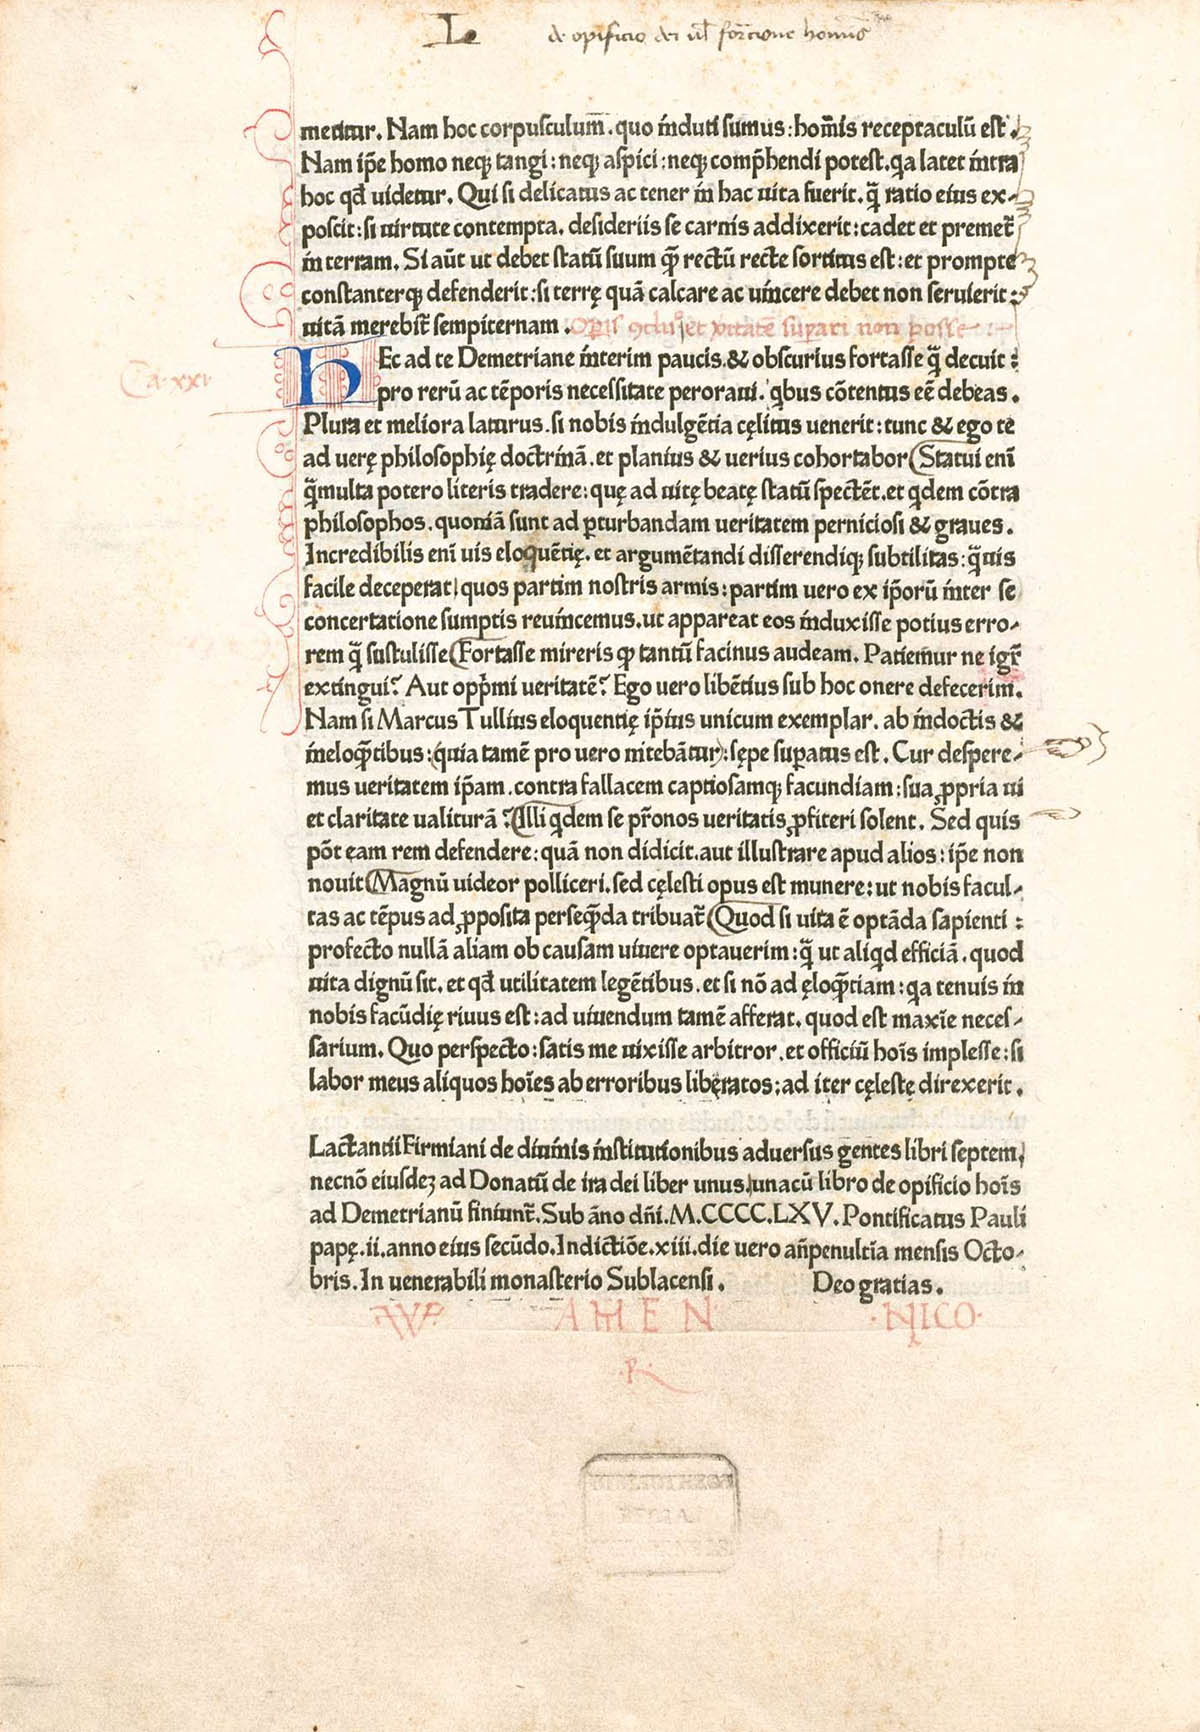 L de opificio dei ul formcione hominis
metitur. Nam hoc corpusculum̅. quo induti sumus: hoīnis receptaculū est.
Nam ip̄e homo neqꝫ tangi: neqꝫ aspici: neqꝫ comp̄hendi potest. qa latet intra
hoc qđ uidetur. Qui si delicatus ac tener in hac uita fuerit. q̄ ratio eius ex-
poscit: si uirtute contempta. desideriis se carnis addixerit: cadet et premet̄
in terram. Si aūt ut debet statū suum q̄ rectū recte sortitus est: et prompte
constanterqꝫ defenderit: si terrę quā calcare ac uincere debet non seruierit:
uitā merebit̄ sempiternam.
Opis ꝯclusio et ueritatē supari non posse
Ca. xxi
HEc ad te Demetriane interim paucis. & obscurius fortasse q̄ decuit:
pro rerū ac tēporis necessitate peroraui. qbus cōtentus eē debeas.
Plura et meliora laturus. si nobis indulgētia cęlitus uenerit: tunc & ego te
ad uerę philosophię doctrinā. et planius & uerius cohortabor (Statui enī
q̄multa potero literis tradere: quę ad uitę beatę statū spectēt. et qdem cōtra
philosophos. quoniā sunt ad ꝑturbandam ueritatem perniciosi & graues.
Incredibilis enī uis eloquētię. et argumētandi disserendiqꝫ subtilitas: q̄uis
facile deceperat quos partim nostris armis: partim uero ex ip̄orū inter se
concertatione sumptis reuincemus. ut appareat eos induxisse potius erro-
rem q̄ sustulisse (Fortasse mireris ꝙ tantū facinus audeam. Patiemur ne igr̄
extingui? Aut opp̄mi ueritatē? Ego uero libētius sub hoc onere defecerim.
Nam si Marcus Tullius eloquentię ip̄ius unicum exemplar. ab indoctis &
ineloq̄tibus: (quia tamē pro uero nitebātur): sępe suꝑatus est. Cur despere-
mus ueritatem ip̄am. contra fallacem captiosamqꝫ facundiam: sua ꝓpria ui
et claritate ualiturā? (Illi qdem se pr̄onos ueritatis ꝓfiteri solent. Sed quis
pōt eam rem defendere: quā non didicit. aut illustrare apud alios: ip̄e non
nouit (Magnū uideor polliceri. sed cęlesti opus est munere: ut nobis facul-
tas ac tēpus ad ꝓposita perseq̄da tribuat̄ (Quod si uita ē optāda sapienti:
profecto nullā aliam ob causam uiuere optauerim: q̄ ut aliqd efficiā. quod
uita dignū sit. et qđ utilitatem legētibus. et si nō ad ęloq̄tiam: qa tenuis in
nobis facūdię riuus est: ad uiuendum tamē afferat. quod est maxīe neces-
sarium. Quo perspecto: satis me uixisse arbitror. et officiū hoīs implesse: si
labor meus aliquos hoīes ab erroribus liberatos: ad iter cęleste direxerit.
Lactantii Firmiani de diuinis institutionibus aduersus gentes libri septem,
necnō eiusdeꝫ ad Donatū de ira dei liber unus. unacū libro de opificio hoīs
ad Demetrianū finiunt̄. Sub āno dn̄i. M.CCCC.LXV. Pontificatus Pauli
papę. ii. anno eius secūdo. Indictiōe. xiii. die uero an̄penultīa mensis Octo-
bris. In uenerabili monasterio Sublacensi. Deo gratias.
AMEN NICO
R